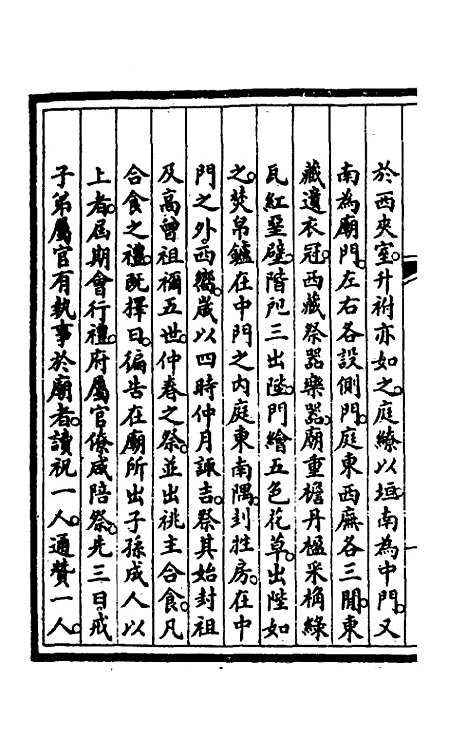 於西夾室。升祔亦如之。庭繚以垣。南為中門。又
南為廟門。左右各設側門。庭東西廡各三間。東
藏遺衣冠。西藏祭器樂器。廟重檐丹楹采桷綠
瓦紅堊壁。階戺三出陛。門繪五色花草。出陛如
之。焚帛鑪在中門之內庭東南隅。刲牲房。在中
門之外。西嚮。歲以四時仲月諏吉。祭其始封祖
及高曾祖禰五世。仲春之祭。並出祧主合食。凡
合食之禮。既擇日。徧告在廟所出子孫成人以
上者。屆期會行禮。府屬官僚咸陪祭。先三日。戒
子弟屬官有執事於廟者。讀祝一人。通贊一人。